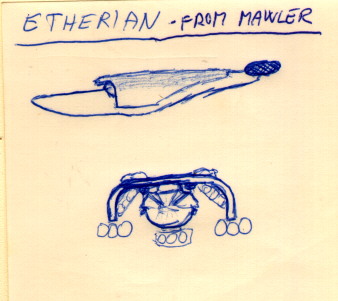 ETHERIAN - FROM MAWLER